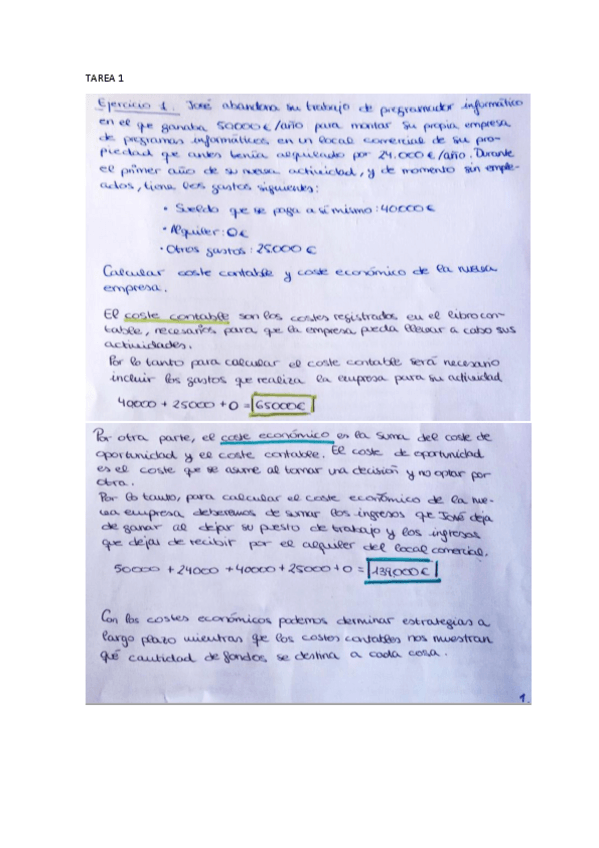 TAREA 1
Ejercicio 1. José abandona su trabajo de programador informático
en el que ganaba 50000€/año para montar su propia empresa
de programas informáticos en un local comercial de su pro-
piedad que antes tenía alquilado por 24.000€/año. Durante
el primer año de su nueva actividad, y de momento sin emple-
ados, tiene los gastos siguientes:
• Sueldo que se paga a sí mismo: 40000€
• Alquiler: 0€
• Otros gastos: 25000€
Calcular coste contable y coste económico de la nueva
empresa.
El coste contable son los costes registrados en el libro con-
table, necesarios para que la empresa pueda llevar a cabo sus
actividades.
Por lo tanto para calcular el coste contable será necesario
incluir los gastos que realiza la empresa para su actividad
40000 + 25000 + 0 = 65000€
Por otra parte, el coste económico es la suma del coste de
oportunidad y el coste contable. El coste de oportunidad
es el coste que se asume al tomar una decisión y no optar por
otra.
Por lo tanto, para calcular el coste económico de la nue-
va empresa deberemos de sumar los ingresos que José deja
de ganar al dejar su puesto de trabajo y los ingresos
que dejas de recibir por el alquiler del local comercial.
50000 + 24000 + 40000 + 25000 + 0 = 139000€
Con los costes económicos podemos derminar estrategias a
largo plazo mientras que los costes contables nos muestran
qué cantidad de fondos, se destina a cada cosa.
1.